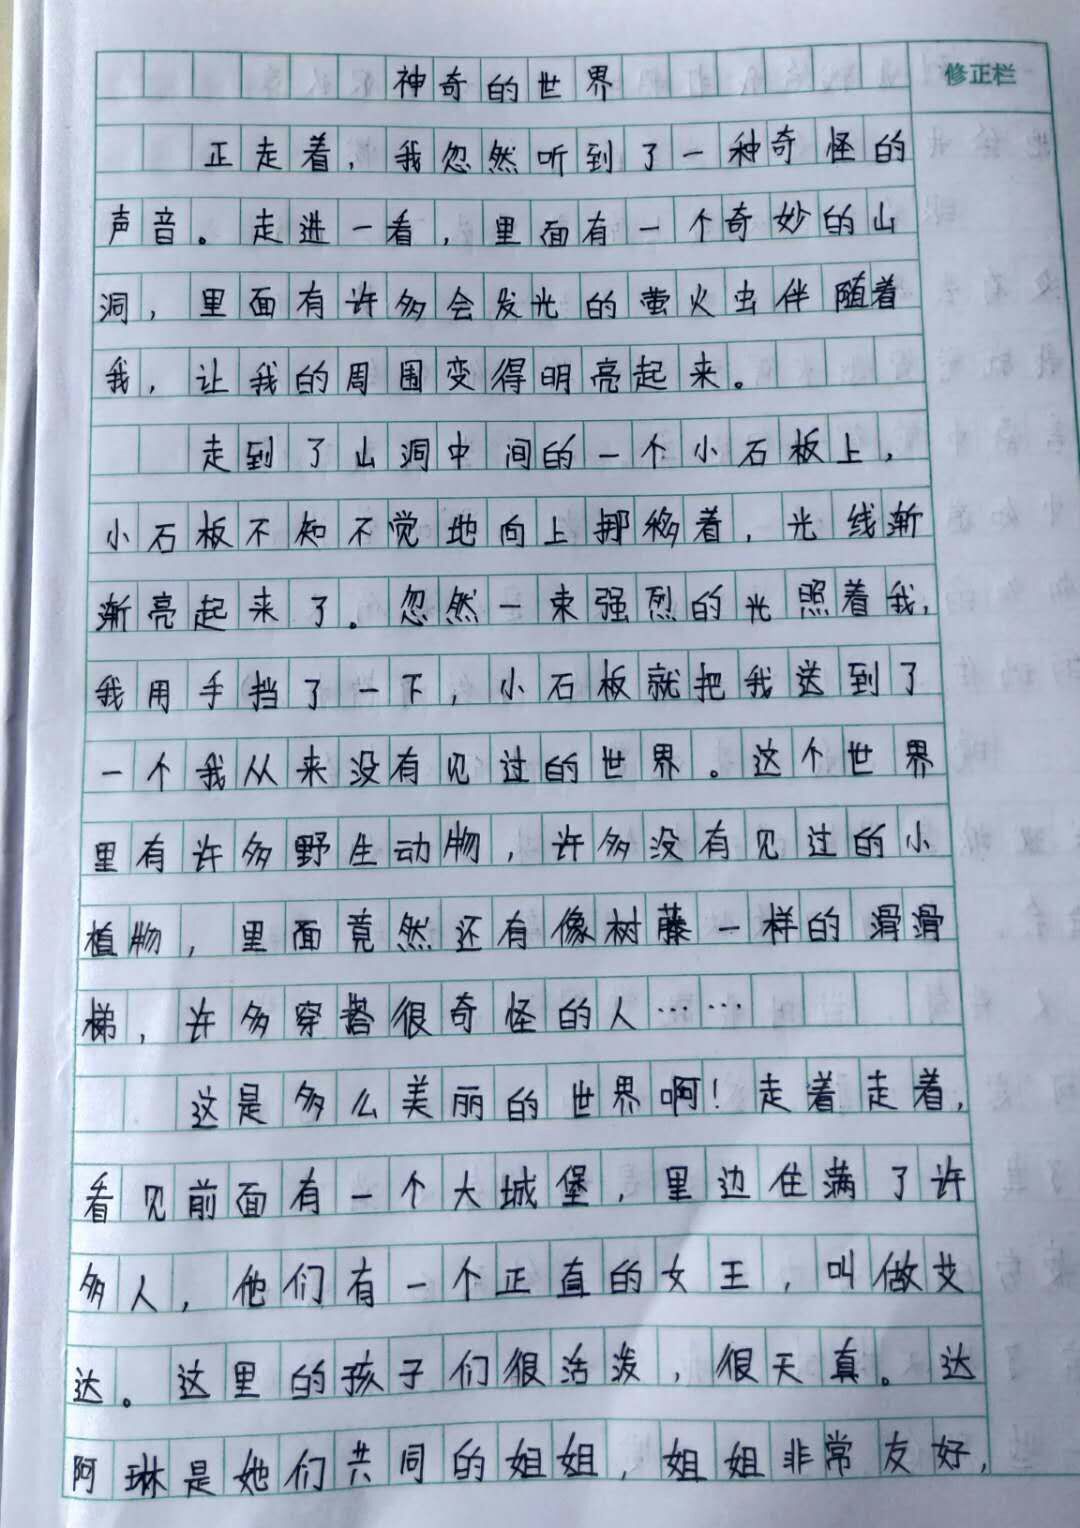 神奇的世界
修正栏
正走着，我忽然听到了一种奇怪的
声音。走进一看，里面有一个奇妙的山
洞，里面有许多会发光的萤火虫伴随着
我，让我的周围变得明亮起来。
走到了山洞中间的一个小石板上，
小石板不知不觉地向上挪移着，光线渐
渐亮起来了。忽然一束强烈的光照着我，
我用手挡了一下，小石板就把我送到了
一个我从来没有见过的世界。这个世界
里有许多野生动物，许多没有见过的小
植物，里面竟然还有像树藤一样的滑滑
梯，许多穿着很奇怪的人……
这是多么美丽的世界啊！走着走着，
看见前面有一个大城堡，里边住满了许
多人，他们有一个正直的女王，叫做艾
达。这里的孩子们很活泼，很天真。达
阿琳是她们共同的姐姐，姐姐非常友好，